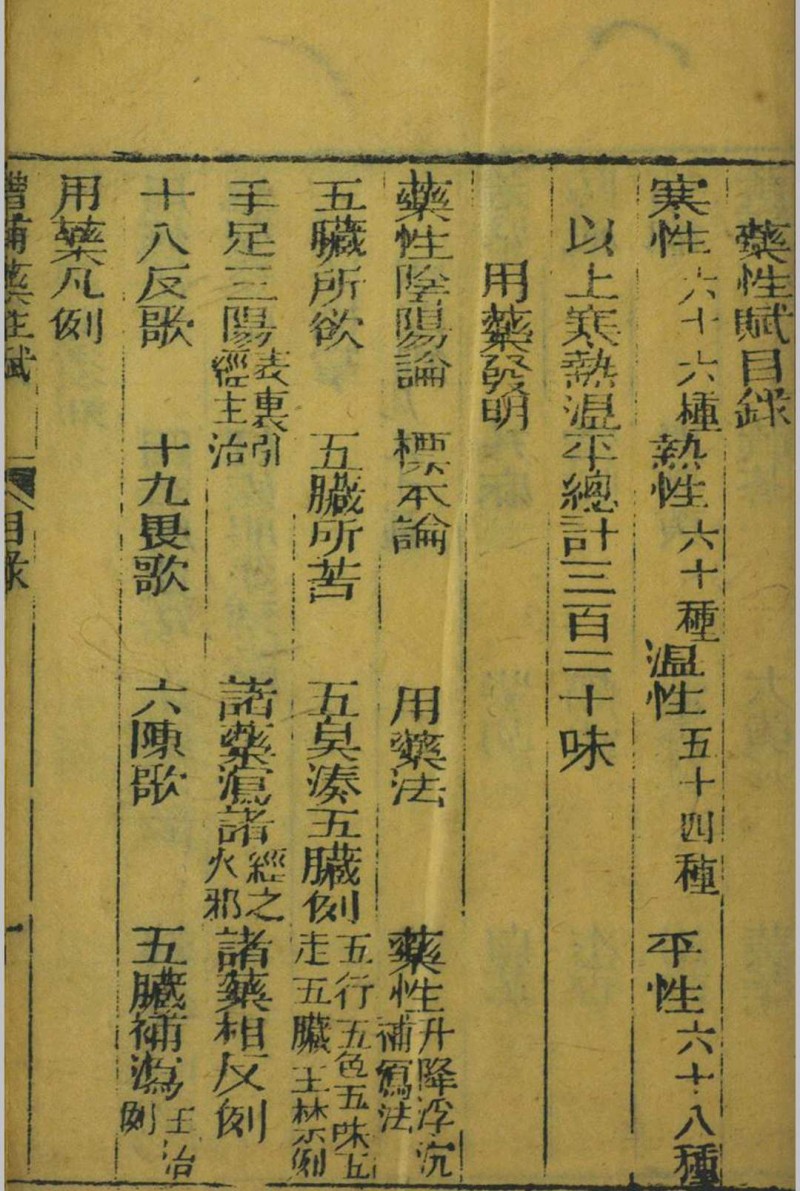 藥性賦目錄
寒性 六十六種 熱性 六十種 溫性 五十四種 平性 六十八種
以上寒熱溫平總計三百二十味
用藥發明
藥性陰陽論 標本論 用藥法 藥性升降浮沉補瀉法
五臟所欲 五臟所苦 五臭湊五臟例 五行五色五味五走五臟主禁例
手足三陽表裏引經主治 諸藥瀉諸經之火邪 諸藥相反例
十八反歌 十九畏歌 六陳歌 五臟補瀉主治例
用藥凡例
增補藥性賦 目錄 一